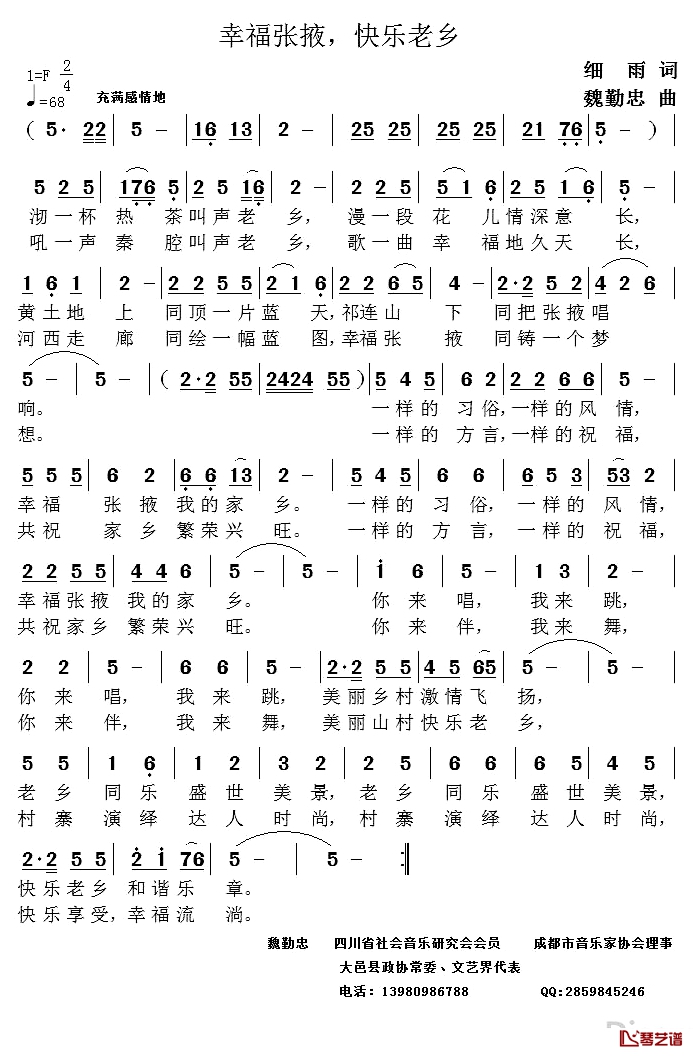 幸福张掖，快乐老乡
1=F 2/4
细 雨 词
♩=68 充满感情地
魏勤忠 曲
( 5· 22 | 5 - | 16 13 | 2 - | 25 25 | 25 25 | 21 76 | 5 - )
5 2 5 | 176 5 | 2 5 16 | 2 - | 5 1 6 | 5 2 1 6 | 5 - |
沏一杯 热 茶叫声老 乡， 漫一段 花 儿情深意 长，
吼一声 秦 腔叫声老 乡， 歌一曲 幸 福地久天 长，
1 6 1 | 2 - | 2 2 5 5 | 2 1 2 | 5 5 6 | 4 - | 2·2 5 2 | 4 2 6 |
黄土地 上 同顶一片蓝 天，祁连山 下 同把张掖唱
河西走 廊 同绘一幅蓝 图，幸福张 掖 同铸一个梦
5 - | 5 - | ( 2·2 55 | 2424 55 ) | 5 4 5 | 6 2 | 2 2 6 6 | 5 - |
响。 一样的 习俗，一样的风 情，
想。 一样的 方言，一样的祝 福，
5 5 5 | 6 2 | 6 6 13 | 2 - | 5 4 5 | 6 6 | 6 5 3 | 53 2 |
幸福 张掖 我的家 乡。 一样的 习俗， 一样的 风情，
共祝 家乡 繁荣兴 旺。 一样的 方言， 一样的 祝福，
2 2 5 5 | 4 4 6 | 5 - | 5 - | 1 6 | 5 - | 1 3 | 2 - |
幸福张掖 我的家 乡。 你来 唱， 我来 跳，
共祝家乡 繁荣兴 旺。 你来 伴， 我来 舞，
2 2 | 5 - | 6 6 | 2 - | 2·2 5 5 | 4 5 65 | 5 - | 5 - |
你来 唱， 我来 跳， 美丽乡村激情飞 扬，
你来 伴， 我来 舞， 美丽山村快乐老 乡，
5 5 | 1 6 | 2 1 | 2 - | 2 5 | 6 6 | 5 6 | 5 - |
老乡 同乐 盛世 美景， 老乡 同乐 盛世 美景，
村寨 演绎 达人 时尚， 村寨 演绎 达人 时尚，
2·2 5 5 | 2 1 76 | 5 - | 5 - :‖
快乐老乡 和谐乐 章。
快乐享受，幸福流 淌。
魏勤忠 四川省社会音乐研究会会员 成都市音乐家协会理事
大邑县政协常委、文艺界代表
电话：13980986788 QQ:2859845246
琴艺谱